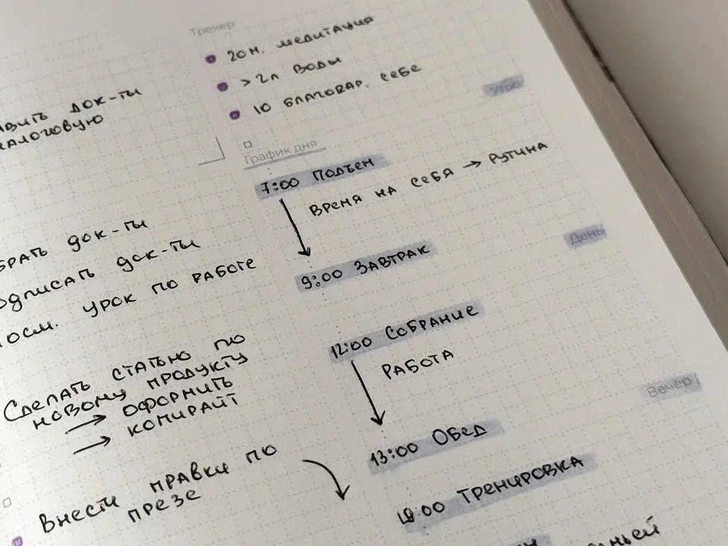 Трекер
20 м. медитация
> 2л воды
10 благодар. себе
док-ты
налоговую
Утро
График дня
7:00 Подъем
Время на себя → рутина
док-ты
подписать док-ты
посм. урок по работе
День
9:00 Завтрак
12:00 Собрание
Работа
Сделать статью по
новому продукту
→ оформить
→ копирайт
Вечер
13:00 Обед
Внести правки по
презе
:00 Тренировка